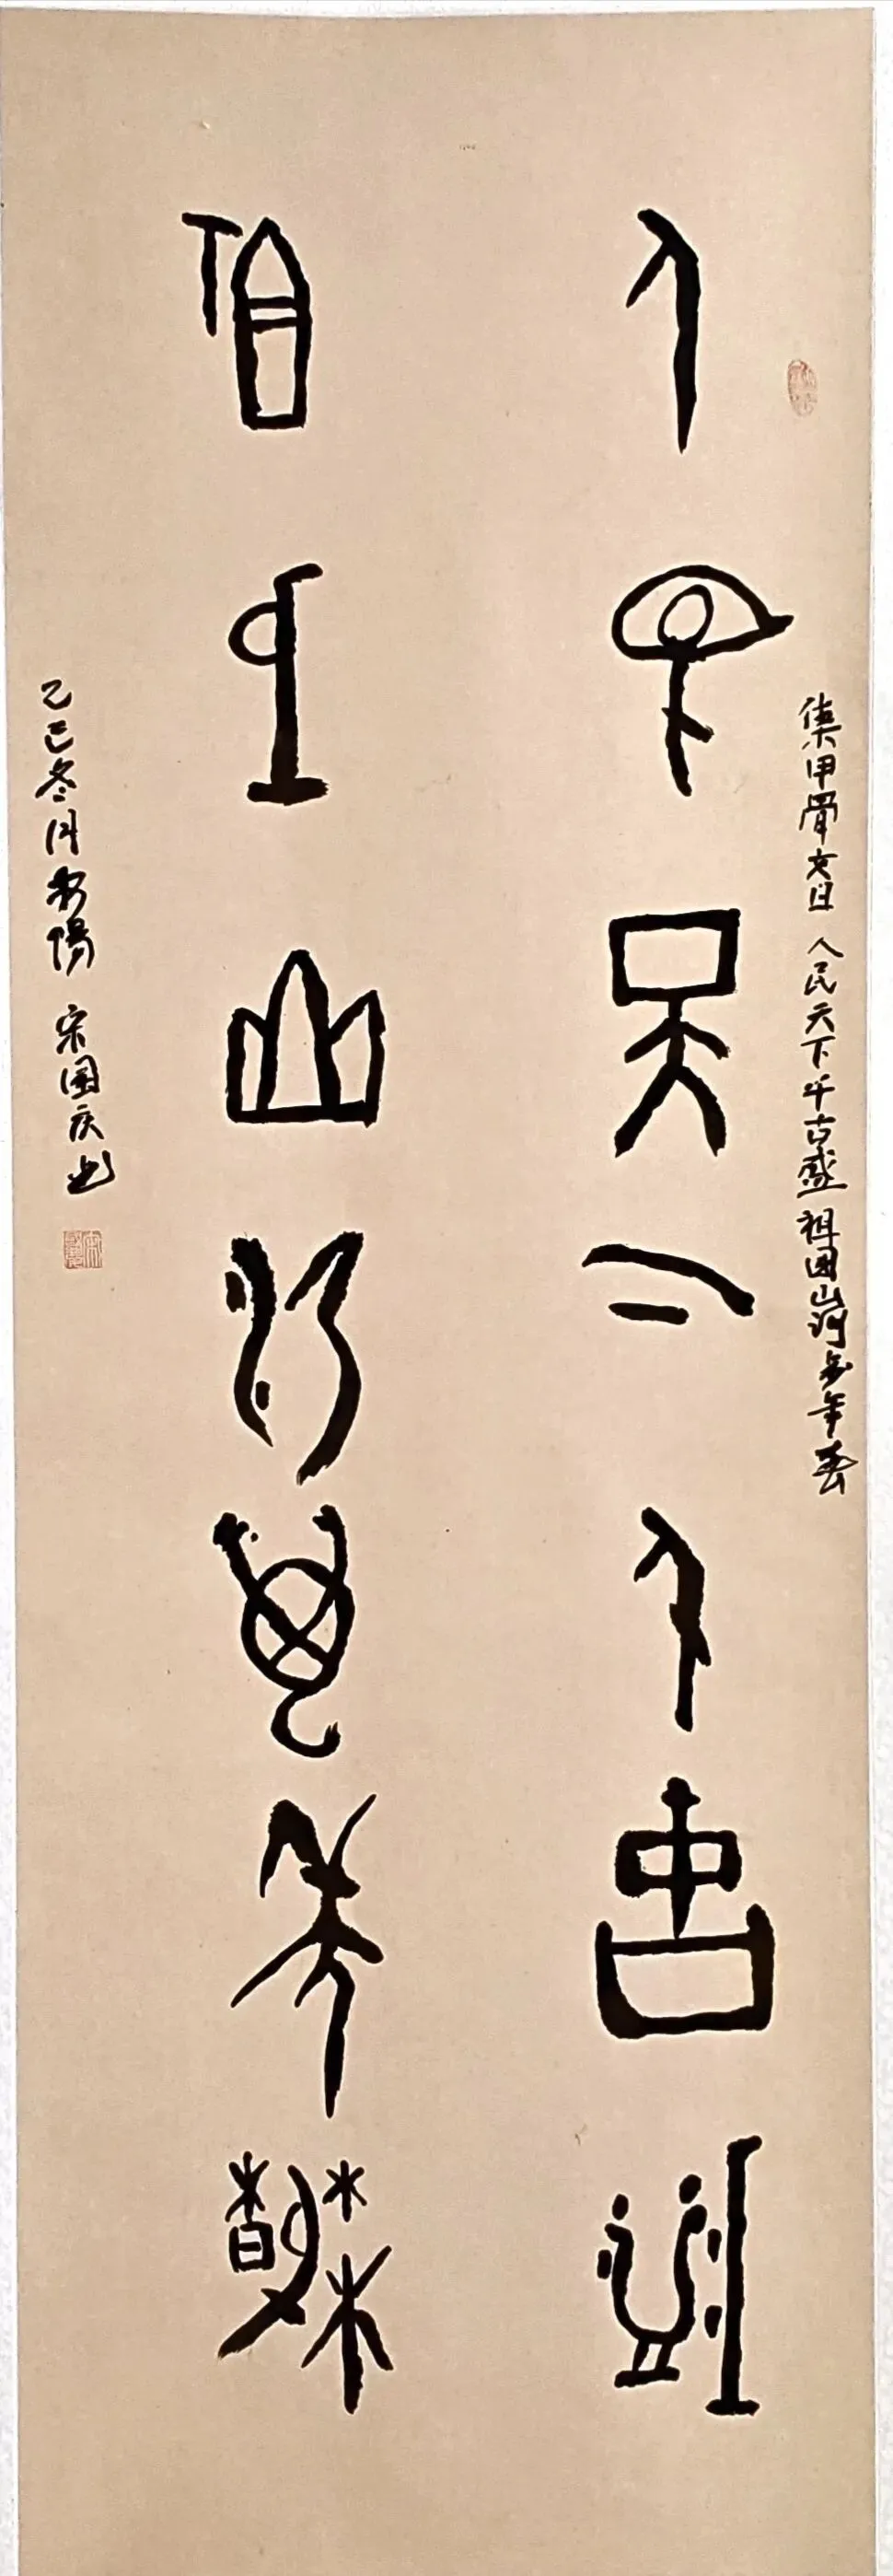 集甲骨文曰 人民天下千古盛 祖国山河万年春
人民天下千古盛
祖国山河万年春
乙巳冬月安阳 宋国庆书